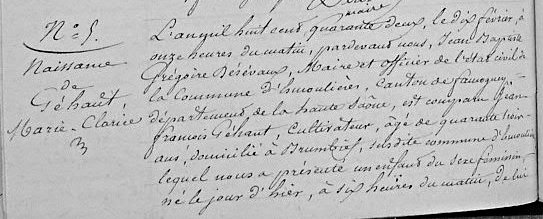 N.° 5.
Naissance
de
Géhaut,
Marie-Clarice
L'an mil huit cent, quarante deux, le dix février, à
maire
onze heures du matin, pardevant nous, Jean Baptiste
Grégoire Maire et officier de l'état civil de
la Commune Canton de faucogney,
département, de la haute Saône, est comparu Jean
françois Géhaut, Cultivateur, âgé de quarante trois
ans, domicilié à susdite commune
lequel nous a présenté un enfant du sexe féminin,
né le jour d'hier, à six heures du matin, de lui